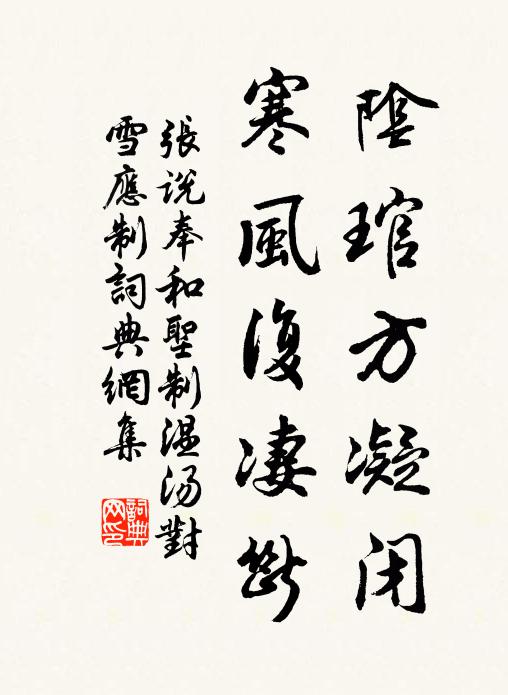 陰琯方凝閉
寒風復凄斷
張說奉和聖制温湯對
雪應制詞典網集
詞典网印